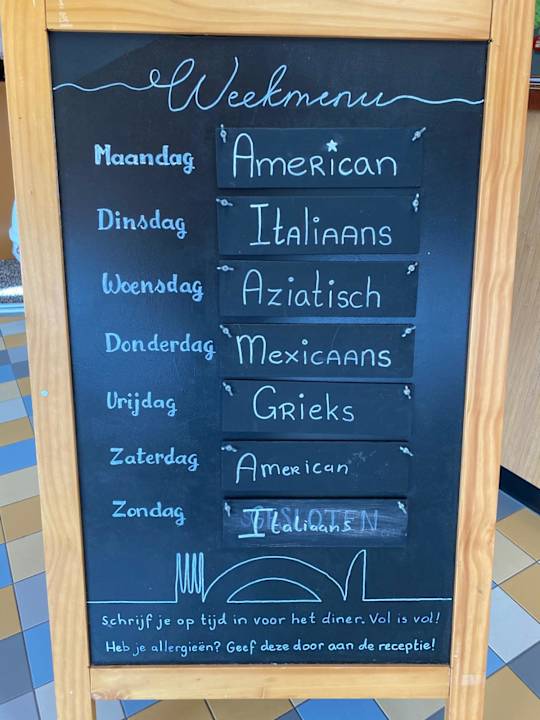 Weekmenu
Maandag American
Dinsdag Italiaans
Woensdag Aziatisch
Donderdag Mexicaans
Vrijdag Grieks
Zaterdag American
Zondag Italiaans
Schrijf je op tijd in voor het diner. Vol is vol!
Heb je allergieën? Geef deze door aan de receptie!